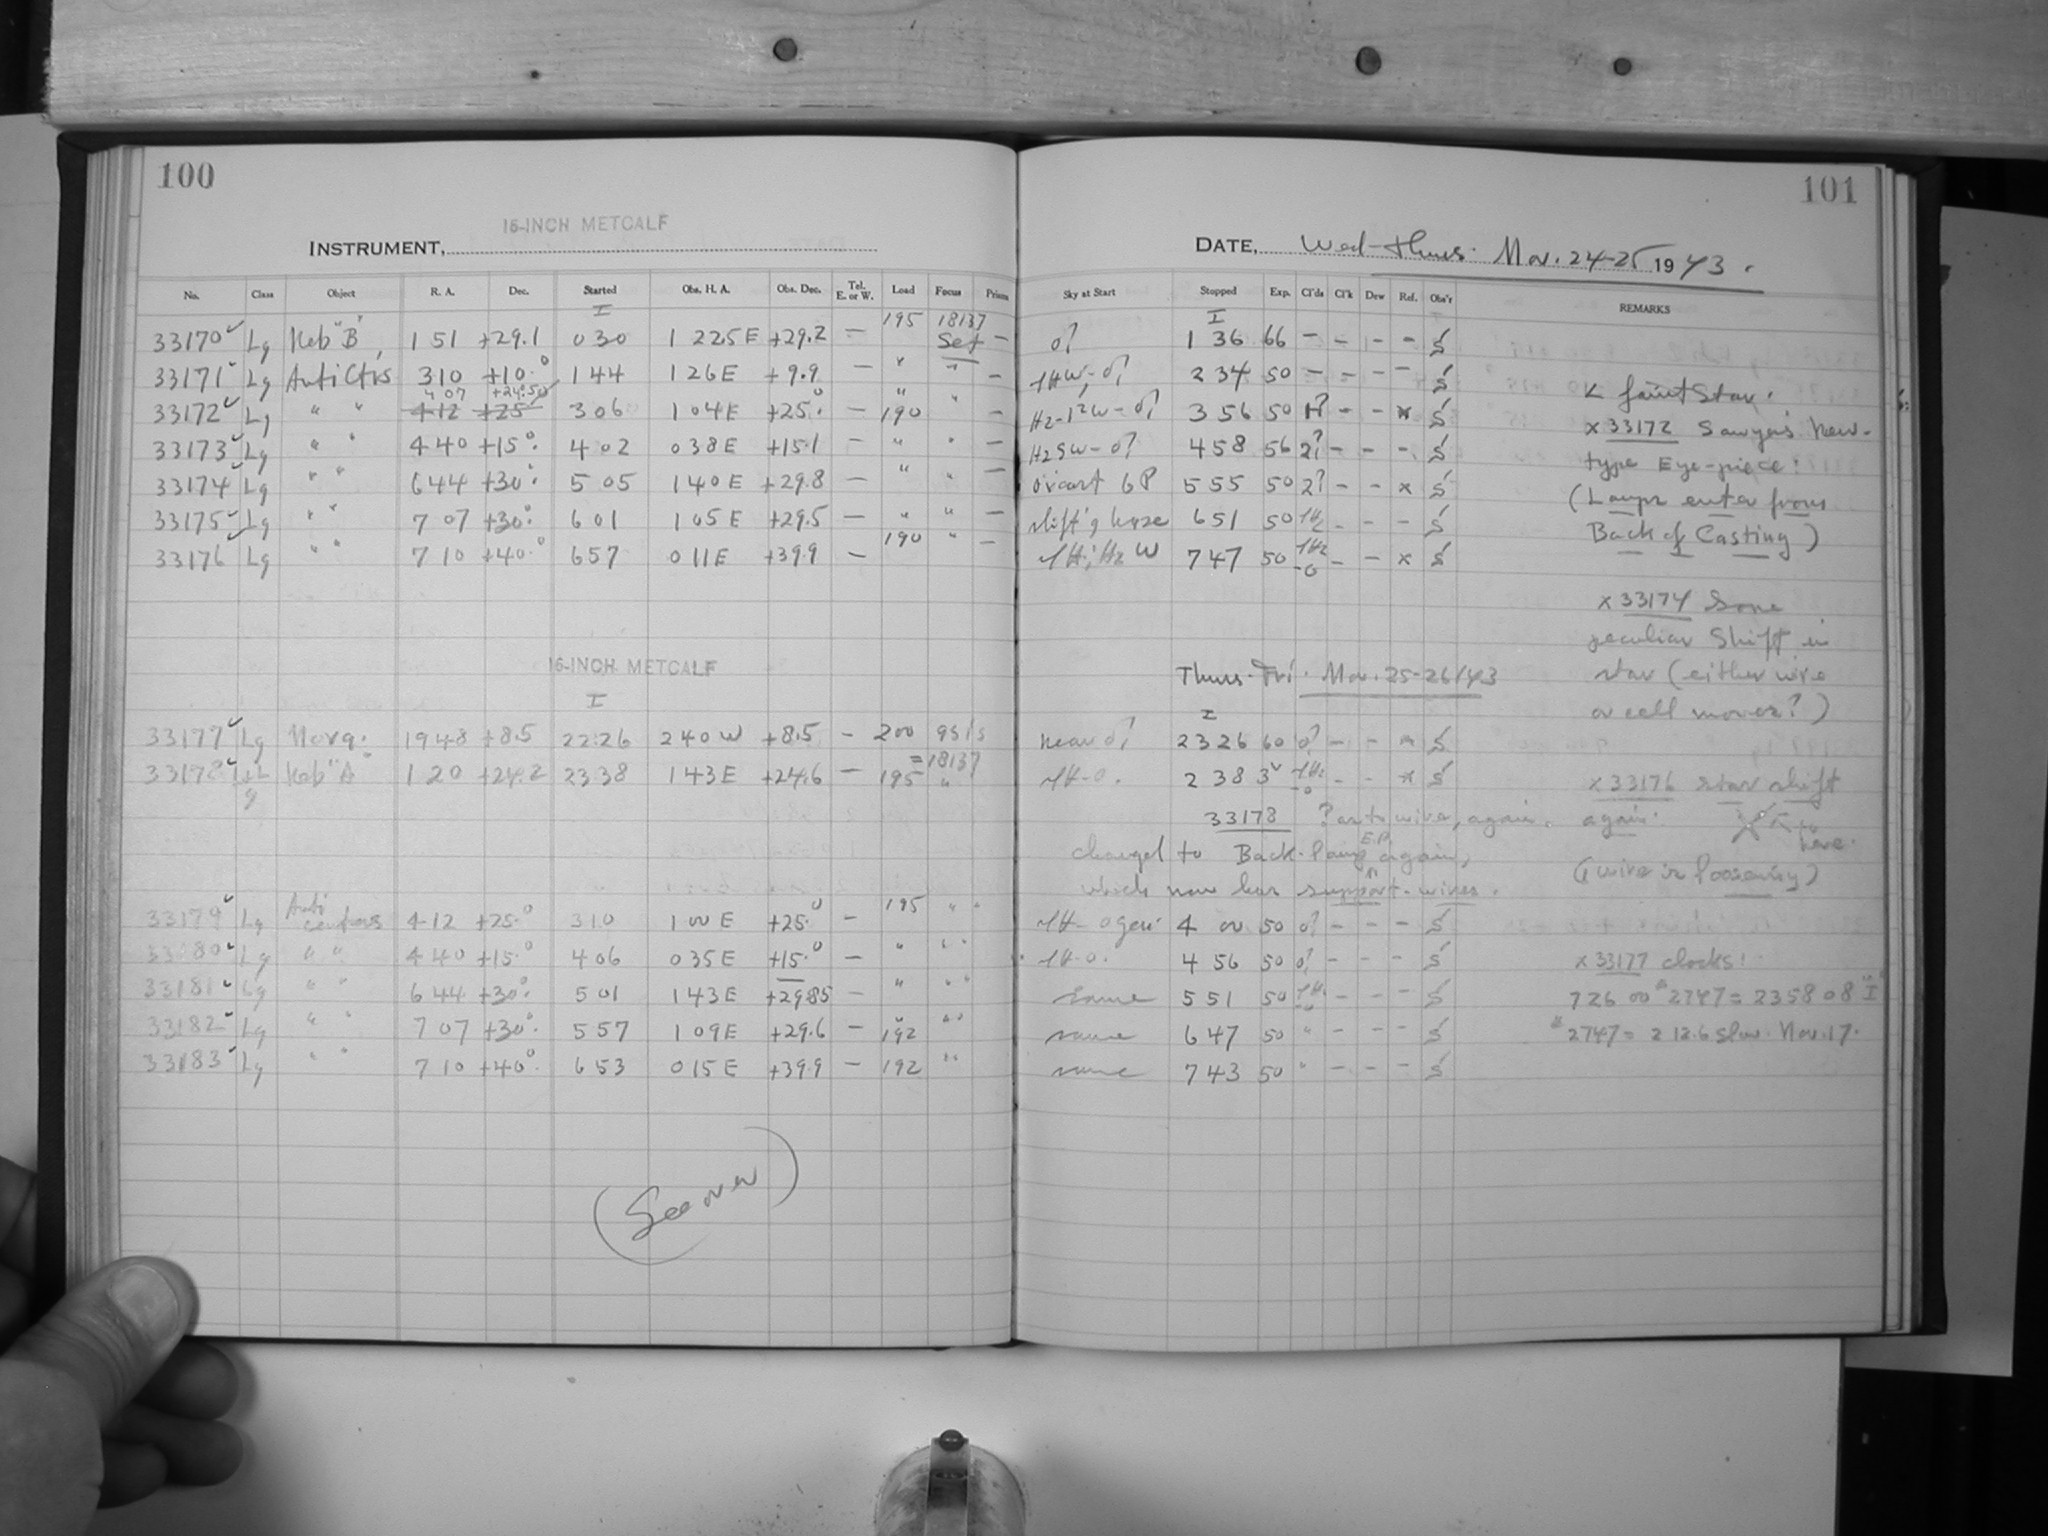 100
16-INCH METCALF
INSTRUMENT,
No. Class Object R. A. Dec. Started Obs. H. A. Obs. Dec. Tel. E. or W. Load Focus Prism
I
33170 Lg Keb "B" 1 51 +29.1 0 30 1 22.5 E +29.2 — 195 18137 Set —
33171 Lg Anti Ctrs 3 10 +10.0 1 44 1 26 E +9.9 — " " —
4 07 +24.50
33172 Lg " " 4 12 +25 3 06 1 04 E +25.0 — 190 " —
33173 Lg " " 4 40 +15.0 4 02 0 38 E +15.1 — " " —
33174 Lg " " 6 44 +30.0 5 05 1 40 E +29.8 — " " —
33175 Lg " " 7 07 +30.0 6 01 1 05 E +29.5 — " " —
33176 Lg " " 7 10 +40.0 6 57 0 11 E +39.9 — 190 " —
16-INCH METCALF
I
33177 Lg Nova: 19 48 +8.5 22 26 2 40 W +8.5 — 200
33178 Keb "A" 1 20 +24.2 23 38 1 43 E +24.6 — 195 =18137 "
33179 Lg Anti centrus 4 12 +25.0 3 10 1 00 E +25.0 — 195 " "
33180 Lg " " 4 40 +15.0 4 06 0 35 E +15.0 — " " "
33181 Lg " " 6 44 +30.0 5 01 1 43 E +29.85 — " " "
33182 Lg " " 7 07 +30.0 5 57 1 09 E +29.6 — 192 " "
33183 Lg " " 7 10 +40.0 6 53 0 15 E +39.9 — 192 " "
(See over)
101
DATE, Wed-Thurs. Nov. 24-25 1943.
Sky at Start Stopped Exp. Cl'ds Cl'k Dew Ref. Obs'r REMARKS
I
1 36 66 — — — — S
2 34 50 — — — — S
3 56 50 — — x S
4 58 56 2? — — — S
5 55 50 2? — — x S
6 51 50 — — — S
7 47 50 — — x S
< faint star.
x 33172 Sawyer's New-
type Eye-piece!
(Lamps enter from
Back of Casting)
x 33174 Some
peculiar shift in
star (either wire
or cell moves?)
Thurs-Fri. Nov. 25-26/43
I
near 23 26 60 — — S
2 38 — — x S
33178 ? as to wire, again.
changed to Back-lamp E.P. again,
which now has support-wires.
x 33176 star shift
again. to here.
(? wire is loosening)
4 00 50 — — — S
4 56 50 — — — S
same 5 51 50 — — — S
same 6 47 50 " — — — S
same 7 43 50 " — — — S
x 33177 clocks!
7 26 00 * 2747 = 23 58 08 I
* 2747 = 2 12.6 slow. Nov. 17.